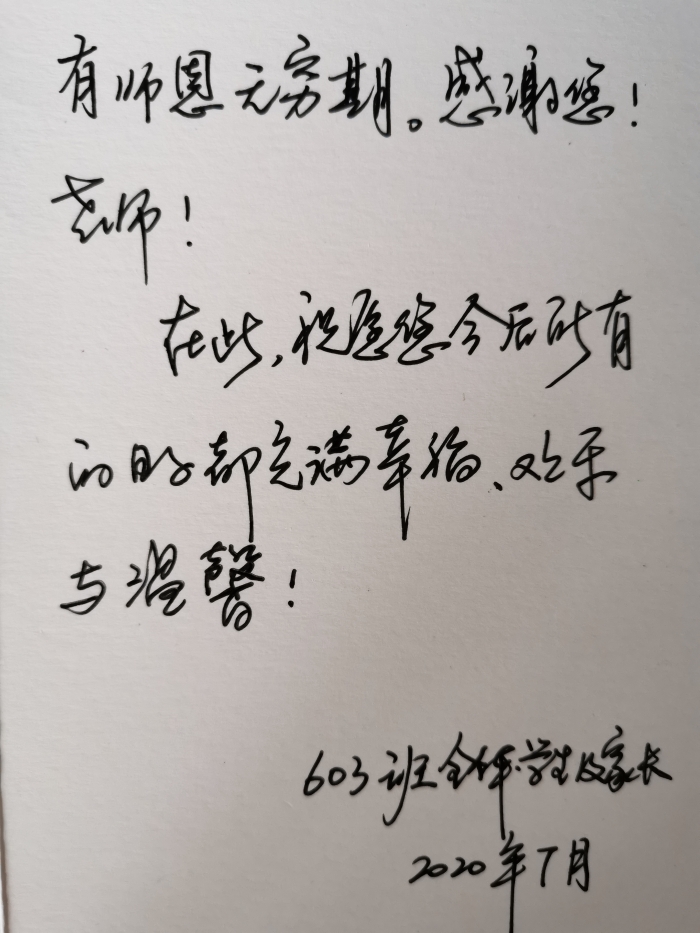 有师恩无穷期。感谢您!
老师!
在此,祝愿您今后所有
的日子都充满幸福、欢乐
与温馨!
603班全体学生及家长
2020年7月